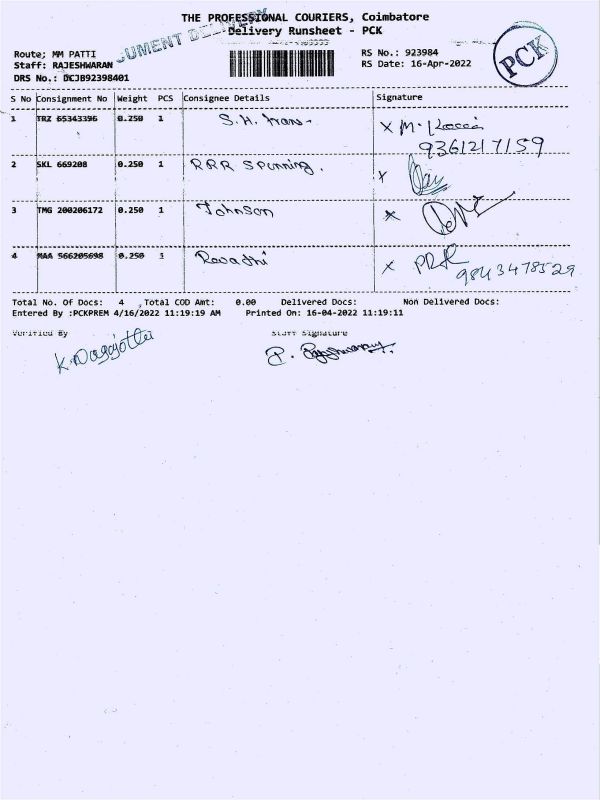 THE PROFESSIONAL COURIERS, Coimbatore
Delivery Runsheet - PCK
DOCUMENT DELIVERY
PCK
Route; MM PATTI
Staff: RAJESHWARAN
DRS No.: DCJB92398401
RS No.: 923984
RS Date: 16-Apr-2022
S No Consignment No Weight PCS Consignee Details Signature
1 TRZ 65343396 0.250 1 S.H. Trans- X M.
9361217159
2 SKL 669208 0.250 1 RRR Spinning. X
3 TMG 200206172 0.250 1 Johnson X
4 MAA 566205698 0.250 1 Revathi X PRR
9843478529
Total No. Of Docs: 4 Total COD Amt: 0.00 Delivered Docs: Non Delivered Docs:
Entered By :PCKPREM 4/16/2022 11:19:19 AM Printed On: 16-04-2022 11:19:11
Verified By Staff Signature